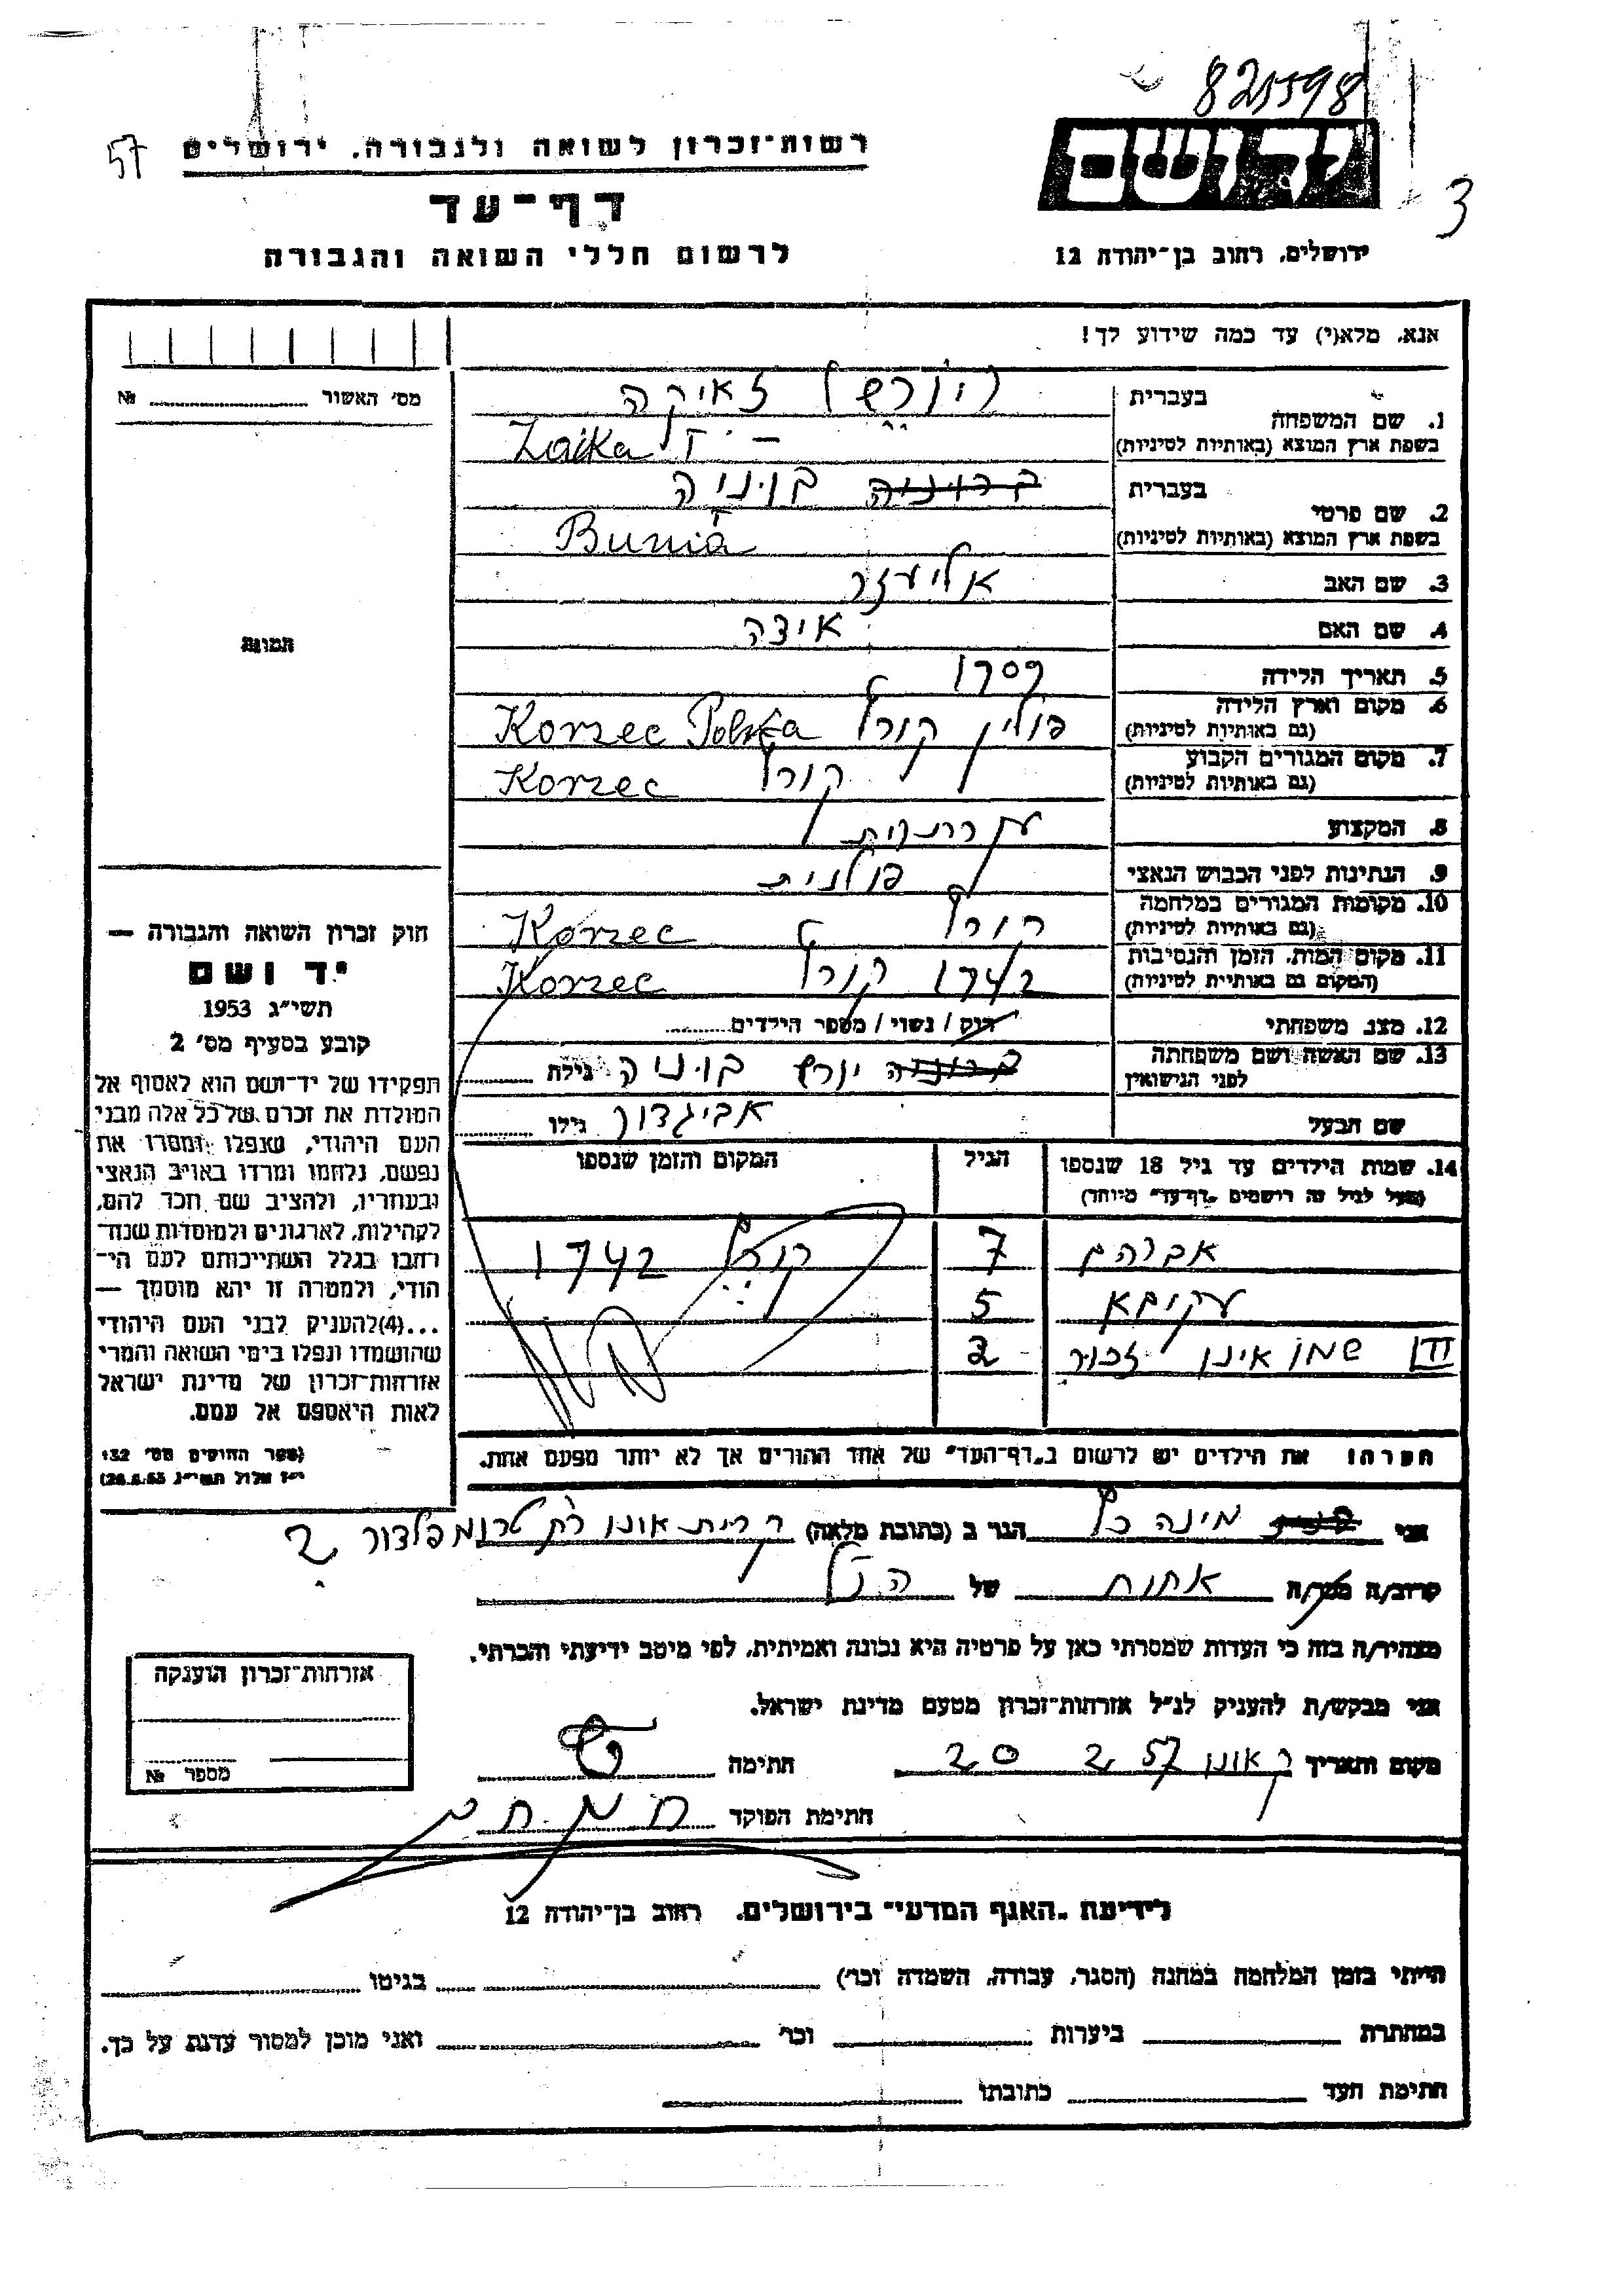 821598
יד ושם
3
57
רשות־זכרון לשואה ולגבורה. ירושלים
דף־עד
לרשום חללי השואה והגבורה
ירושלים, רחוב בן־יהודה 12
אנא, מלא(י) עד כמה שידוע לך!
מס' האשור №
תמונה
1. שם המשפחה בעברית (יורש) זאיקה
בשפת ארץ המוצא (באותיות לטיניות) Zaika
2. שם פרטי בעברית בוניה
בשפת ארץ המוצא (באותיות לטיניות) Bunia
3. שם האב אליעזר
4. שם האם איצה
5. תאריך הלידה 1909
6. מקום וארץ הלידה (גם באותיות לטיניות) פולין קורץ Korzec Polska
7. מקום המגורים הקבוע (גם באותיות לטיניות) קורץ Korzec
8. המקצוע עקרת בית
9. הנתינות לפני הכבוש הנאצי פולנית
10. מקומות המגורים במלחמה (גם באותיות לטיניות) קורץ Korzec
11. מקום המות, הזמן והנסיבות (המקום גם באותיות לטיניות) 1942 קורץ Korzec
12. מצב משפחתי רוק / נשוי / מספר הילדים
13. שם האשה ושם משפחתה לפני הנישואין יורש בוניה גילה
שם הבעל אביגדור גילו
14. שמות הילדים עד גיל 18 שנספו (מעל לגיל זה רושמים "דף־עד" מיוחד) הגיל המקום והזמן שנספו
אברהם 7 קורץ 1942
עקיבא 5
III שמו אינו זכור 2
הערה: את הילדים יש לרשום ב"דף־העד" של אחד ההורים אך לא יותר מפעם אחת.
חוק זכרון השואה והגבורה —
יד ושם
תשי"ג 1953
קובע בסעיף מס' 2
תפקידו של יד־ושם הוא לאסוף אל
המולדת את זכרם של כל אלה מבני
העם היהודי, שנפלו ומסרו את
נפשם, נלחמו ומרדו באויב הנאצי
ובעוזריו, ולהציב שם וזכר להם,
לקהילות, לארגונים ולמוסדות שנח־
רבו בגלל השתייכותם לעם הי־
הודי, ולמטרה זו יהא מוסמך —
...(4) להעניק לבני העם היהודי
שהושמדו ונפלו בימי השואה והמרי
אזרחות־זכרון של מדינת ישראל
לאות היאספם אל עמם.
(ספר החוקים מס' 132
י"ז אלול תשי"ג 28.8.53)
אני מינה כץ הגר ב (כתובת מלאה) קרית אונו רח טרומפלדור 2
קרוב/ה מכר/ה אחות של הנ"ל
מצהיר/ה בזה כי העדות שמסרתי כאן על פרטיה היא נכונה ואמיתית, לפי מיטב ידיעתי והכרתי.
אני מבקש/ת להעניק לנ"ל אזרחות־זכרון מטעם מדינת ישראל.
מקום ותאריך ק אונו 20 2 57 חתימה
חתימת הפוקד
אזרחות־זכרון הוענקה
מספר №
לידיעת "האגף המדעי" בירושלים. רחוב בן־יהודה 12
הייתי בזמן המלחמה במחנה (הסגר, עבודה, השמדה וכו') בגיטו
במחתרת ביערות וכו' ואני מוכן למסור עדות על כך.
חתימת העד כתובתו